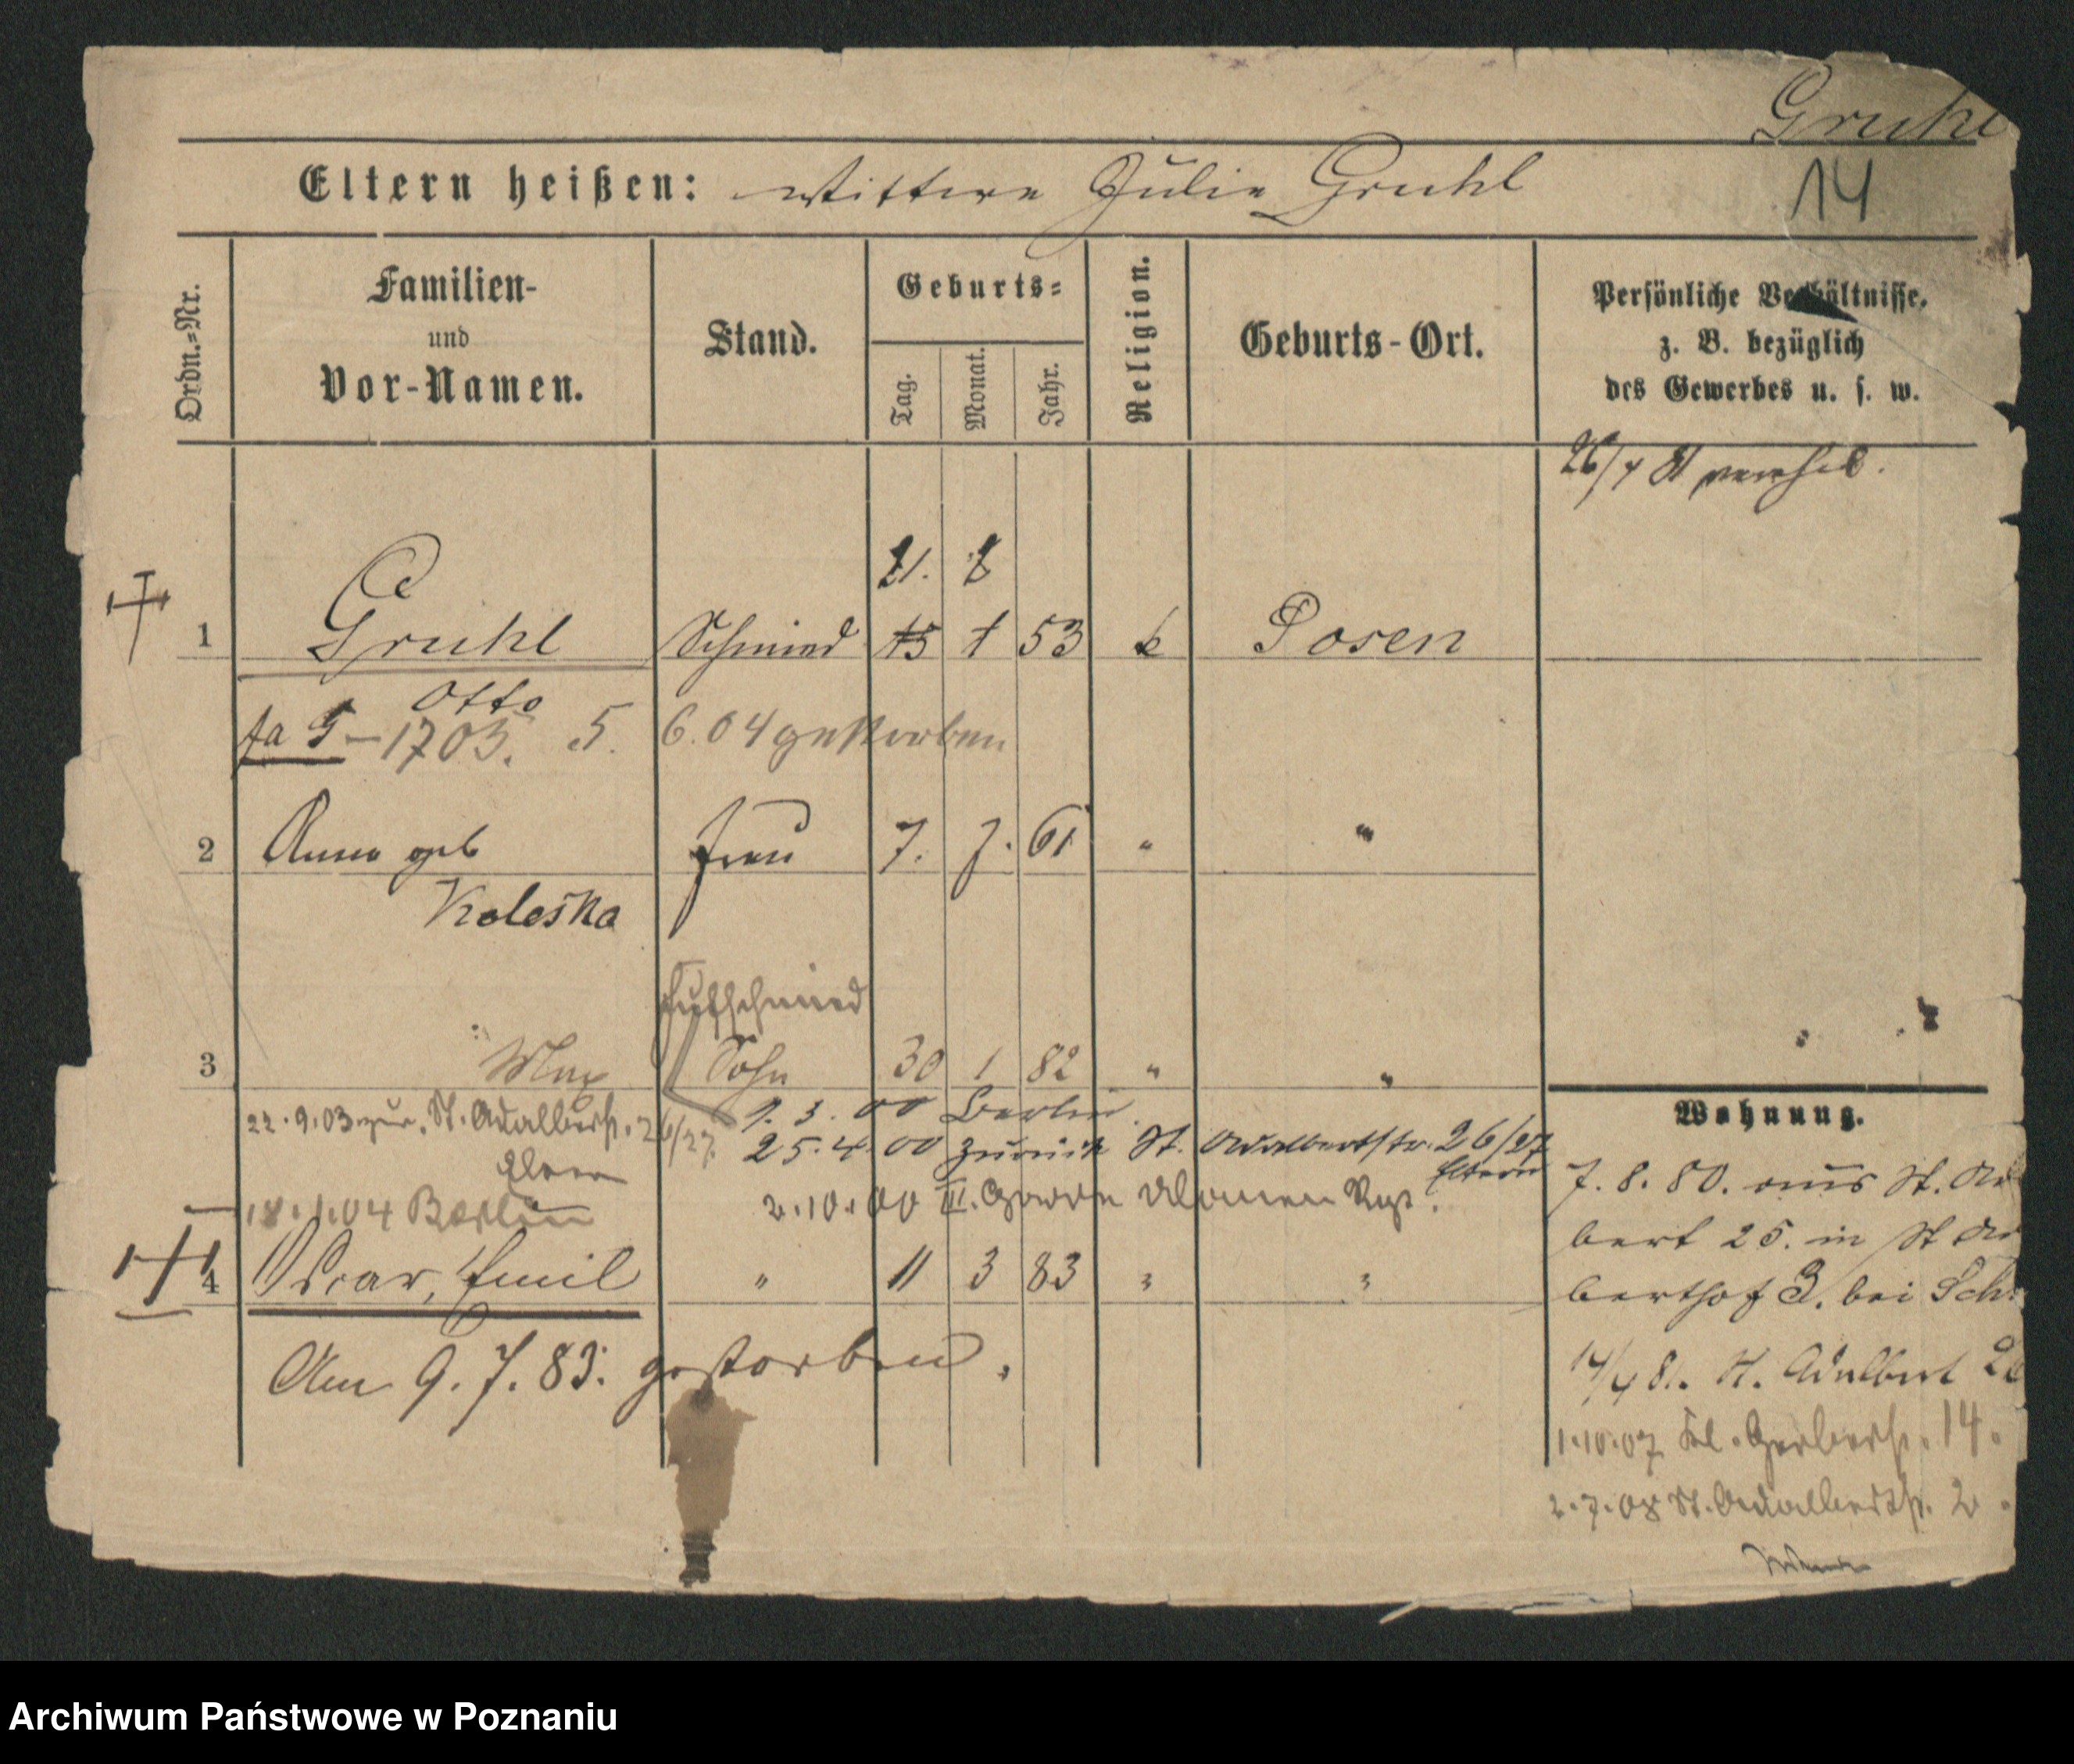 Gruhl
14
Eltern heißen: Wittwe Julie Gruhl
Ordn.=Nr.
Familien-
und
Vor-Namen.
Stand.
Geburts=
Tag.
Monat.
Jahr.
Religion.
Geburts-Ort.
Persönliche Verhältnisse.
z. B. bezüglich
des Gewerbes u. s. w.
26/4 81 verehel.
21. 8
1 Gruhl Schmied 15 1 53 k Posen
Otto
1703. 5. 6. 04 gestorben
2 Anna geb Frau 7. 7. 61 " "
Koleska
Hufschmied
3 Max Sohn 30 1 82 " "
22.9.03 zur. St. Adalbertstr. 26/27.
Eltern
18.1.04 Berlin
9. 3. 00 Berlin.
25. 4. 00 zurück St. Adalbertstr. 26/27
Eltern
2.10.00 III. Garde Ulanen Regt.
4 Oscar, Emil " 11 3 83 " "
Am 9. 7. 83. gestorben.
Wohnung.
7. 8. 80. aus St. Adal
bert 25. in St Adal
berthof 3. bei Sch
14/4 81. St. Adalbert 26
1.10.07 Kl. Gerberstr. 14.
2.7.08 St. Adalbertstr. 2.
Archiwum Państwowe w Poznaniu